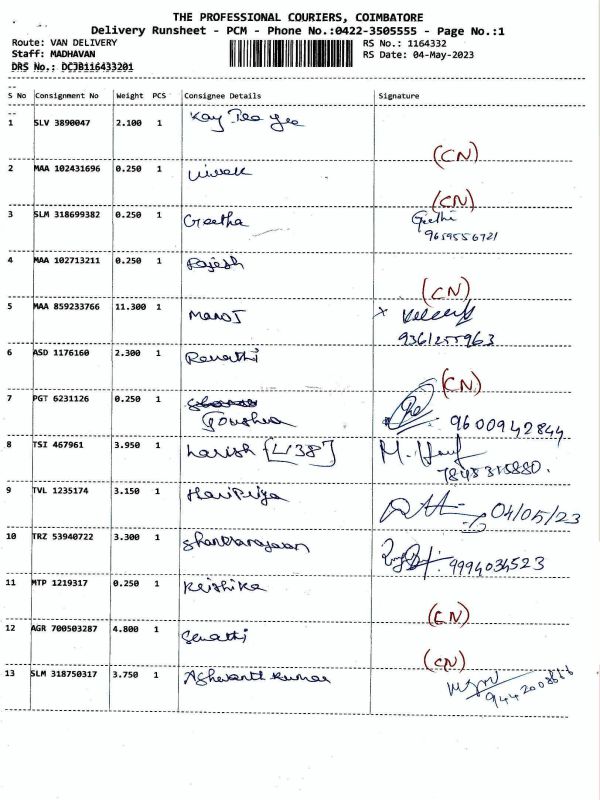 THE PROFESSIONAL COURIERS, COIMBATORE
Delivery Runsheet - PCM - Phone No.:0422-3505555 - Page No.:1
Route: VAN DELIVERY RS No.: 1164332
Staff: MADHAVAN RS Date: 04-May-2023
DRS No.: DCJB116433201
S No Consignment No Weight PCS Consignee Details Signature
1 SLV 3890047 2.100 1 Kay Tee yee
(CN)
2 MAA 102431696 0.250 1 vivek
(CN)
3 SLM 318699382 0.250 1 Geetha Geethi
9659556721
4 MAA 102713211 0.250 1 Rajesh
(CN)
5 MAA 859233766 11.300 1 Manoj x
9361255963
6 ASD 1176160 2.300 1 Revathi
(CN)
7 PGT 6231126 0.250 1
9600942844
8 TSI 467961 3.950 1 Harish [U38] M.
7845315880.
9 TVL 1235174 3.150 1 HariPriya 04/05/23
10 TRZ 53940722 3.300 1 Shankaranarayanan 9994034523
11 MTP 1219317 0.250 1 Keishika
(CN)
12 AGR 700503287 4.800 1 Senathi
(CN)
13 SLM 318750317 3.750 1 Ashwanth kumar